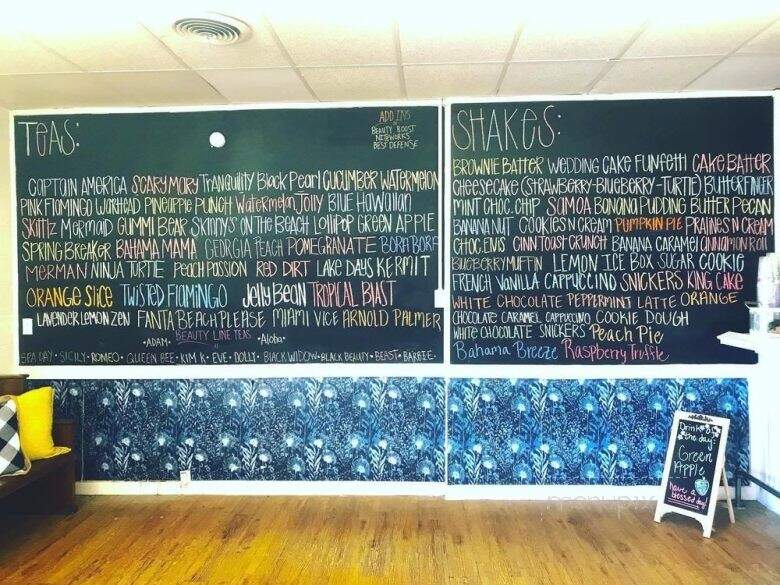 TEAS:
ADD INS
BEAUTY BOOST
NITEWORKS
BEST DEFENSE
CAPTAIN AMERICA SCARY MARY TRANQUILITY Black Pearl CUCUMBER WATERMELON
PINK FLAMINGO WARHEAD PINEAPPLE PUNCH WATERMELON JOLLY BLUE HAWAIIAN
SKITTLZ MERMAID GUMMI BEAR SKINNY'S ON THE BEACH LOLLIPOP GREEN APPLE
SPRING BREAKER BAHAMA MAMA GEORGIA PEACH POMEGRANATE BORA BORA
MERMAN NINJA TURTLE PEACH PASSION RED DIRT LAKE DAYS KERMIT
ORANGE SLICE TWISTED FLAMINGO Jelly BEAN TROPICAL BLAST
LAVENDER LEMON ZEN FANTA BEACH PLEASE MIAMI VICE ARNOLD PALMER
•ADAM• BEAUTY LINE TEAS •Aloha•
SEA DAY • SICILY • ROMEO • QUEEN BEE • KIM K • EVE • DOLLY • BLACK WIDOW • BLACK BEAUTY • BEAST • BARBIE
SHAKES:
BROWNIE BATTER WEDDING CAKE FUNFETTI CAKE BATTER
CHEESECAKE (STRAWBERRY-BLUEBERRY-TURTLE) BUTTERFINGER
MINT CHOC. CHIP SAMOA BANANA PUDDING BUTTER PECAN
BANANA NUT COOKIES N CREAM PUMPKIN PIE PRALINES N CREAM
CHOC. ELVIS CINN TOAST CRUNCH BANANA CARAMEL CINNAMON ROLL
BLUEBERRY MUFFIN LEMON ICE BOX SUGAR COOKIE
FRENCH VANILLA CAPPUCCINO SNICKERS KING CAKE
WHITE CHOCOLATE PEPPERMINT LATTE ORANGE
CHOCOLATE CARAMEL CAPPUCCINO COOKIE DOUGH
WHITE CHOCOLATE SNICKERS PEACH PIE
BAHAMA BREEZE RASPBERRY TRUFFLE
Drink of
the day
Green
Apple
have a
blessed day!